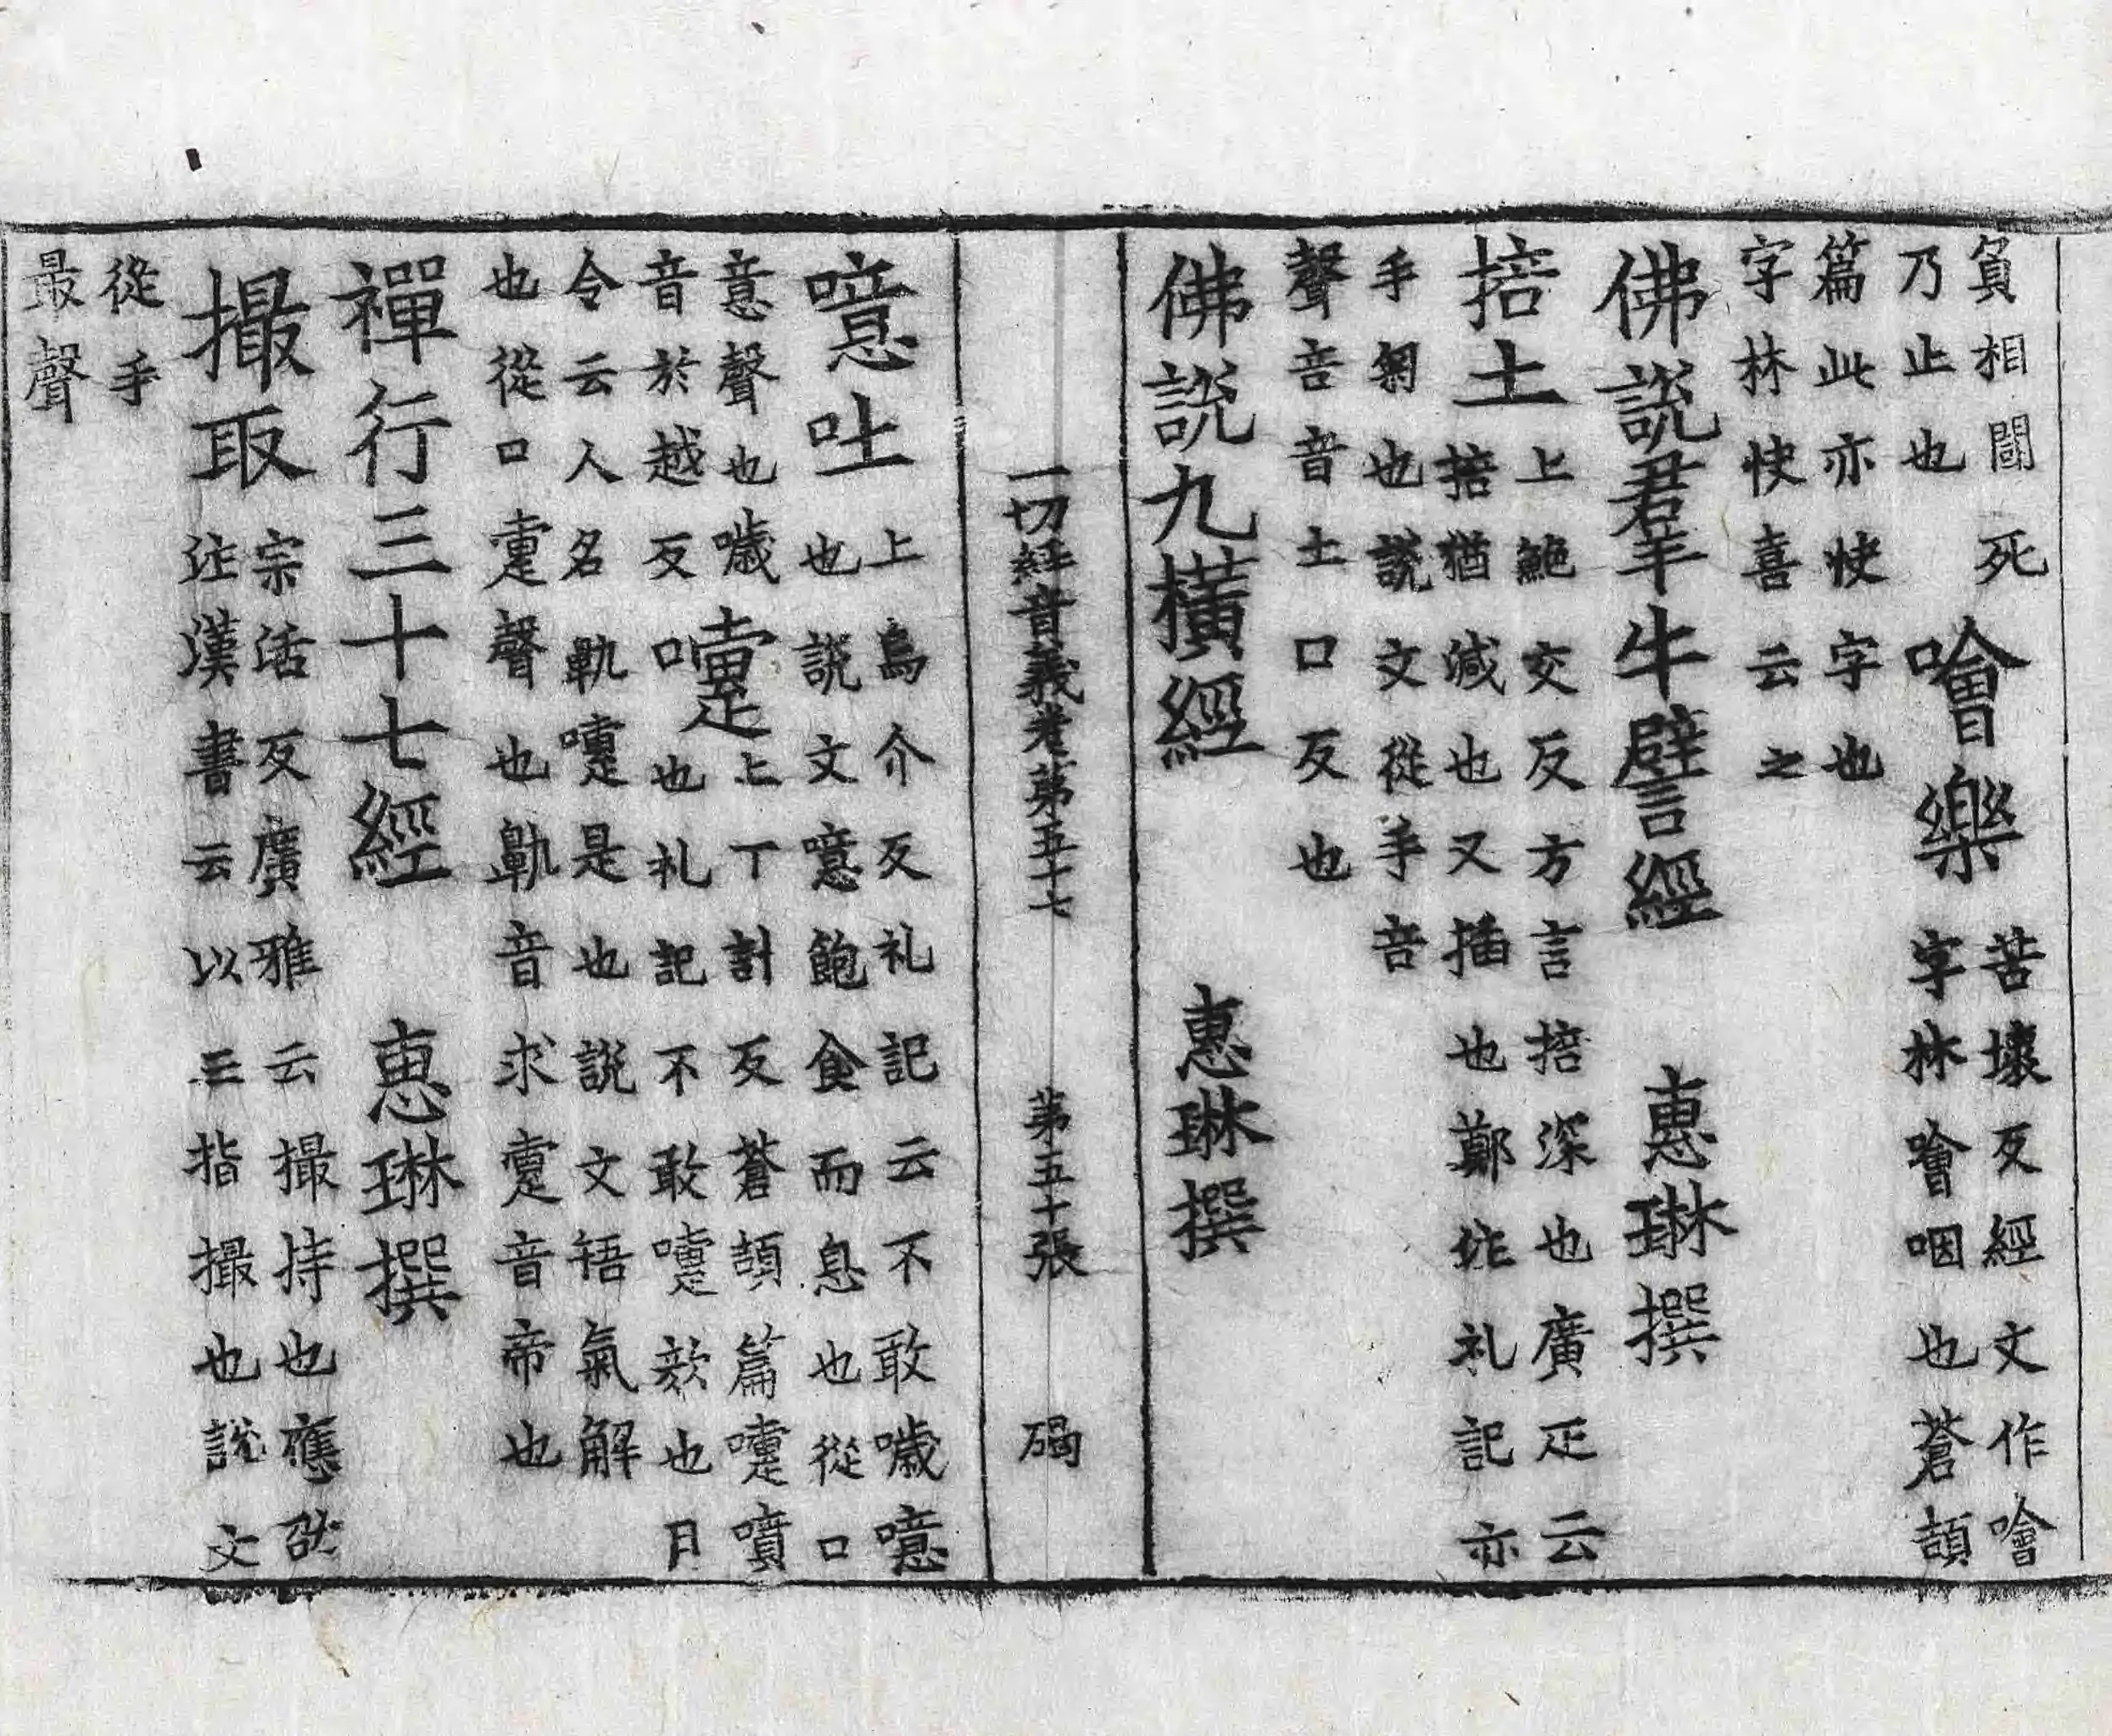 負相鬪死
乃止也
噲樂
苦壞反經文作噲
字林噲咽也蒼頡
篇此亦快字也
字林快喜云之
佛說羣牛譬經 惠琳撰
掊土
上鮑交反方言掊深也廣疋云
掊猶減也又插也鄭作礼記亦
手匊也說文從手咅
聲咅音土口反也
佛說九橫經 惠琳撰
一切經音義卷第五十七 第五十張 碣
噫吐
上烏介反礼記云不敢噦噫
也說文噫飽食而息也從口
意聲也噦
音於越反
嚏
上丁計反蒼頡篇嚏噴
口也札記不敢嚏欬也月
令云人名鼽嚏是也說文悟氣解
也從口疐聲也鼽音求疐音帝也
禪行三十七經 惠琳撰
撮取
宗活反廣雅云撮持也應劭
注漢書云以三指撮也說文
從手
最聲